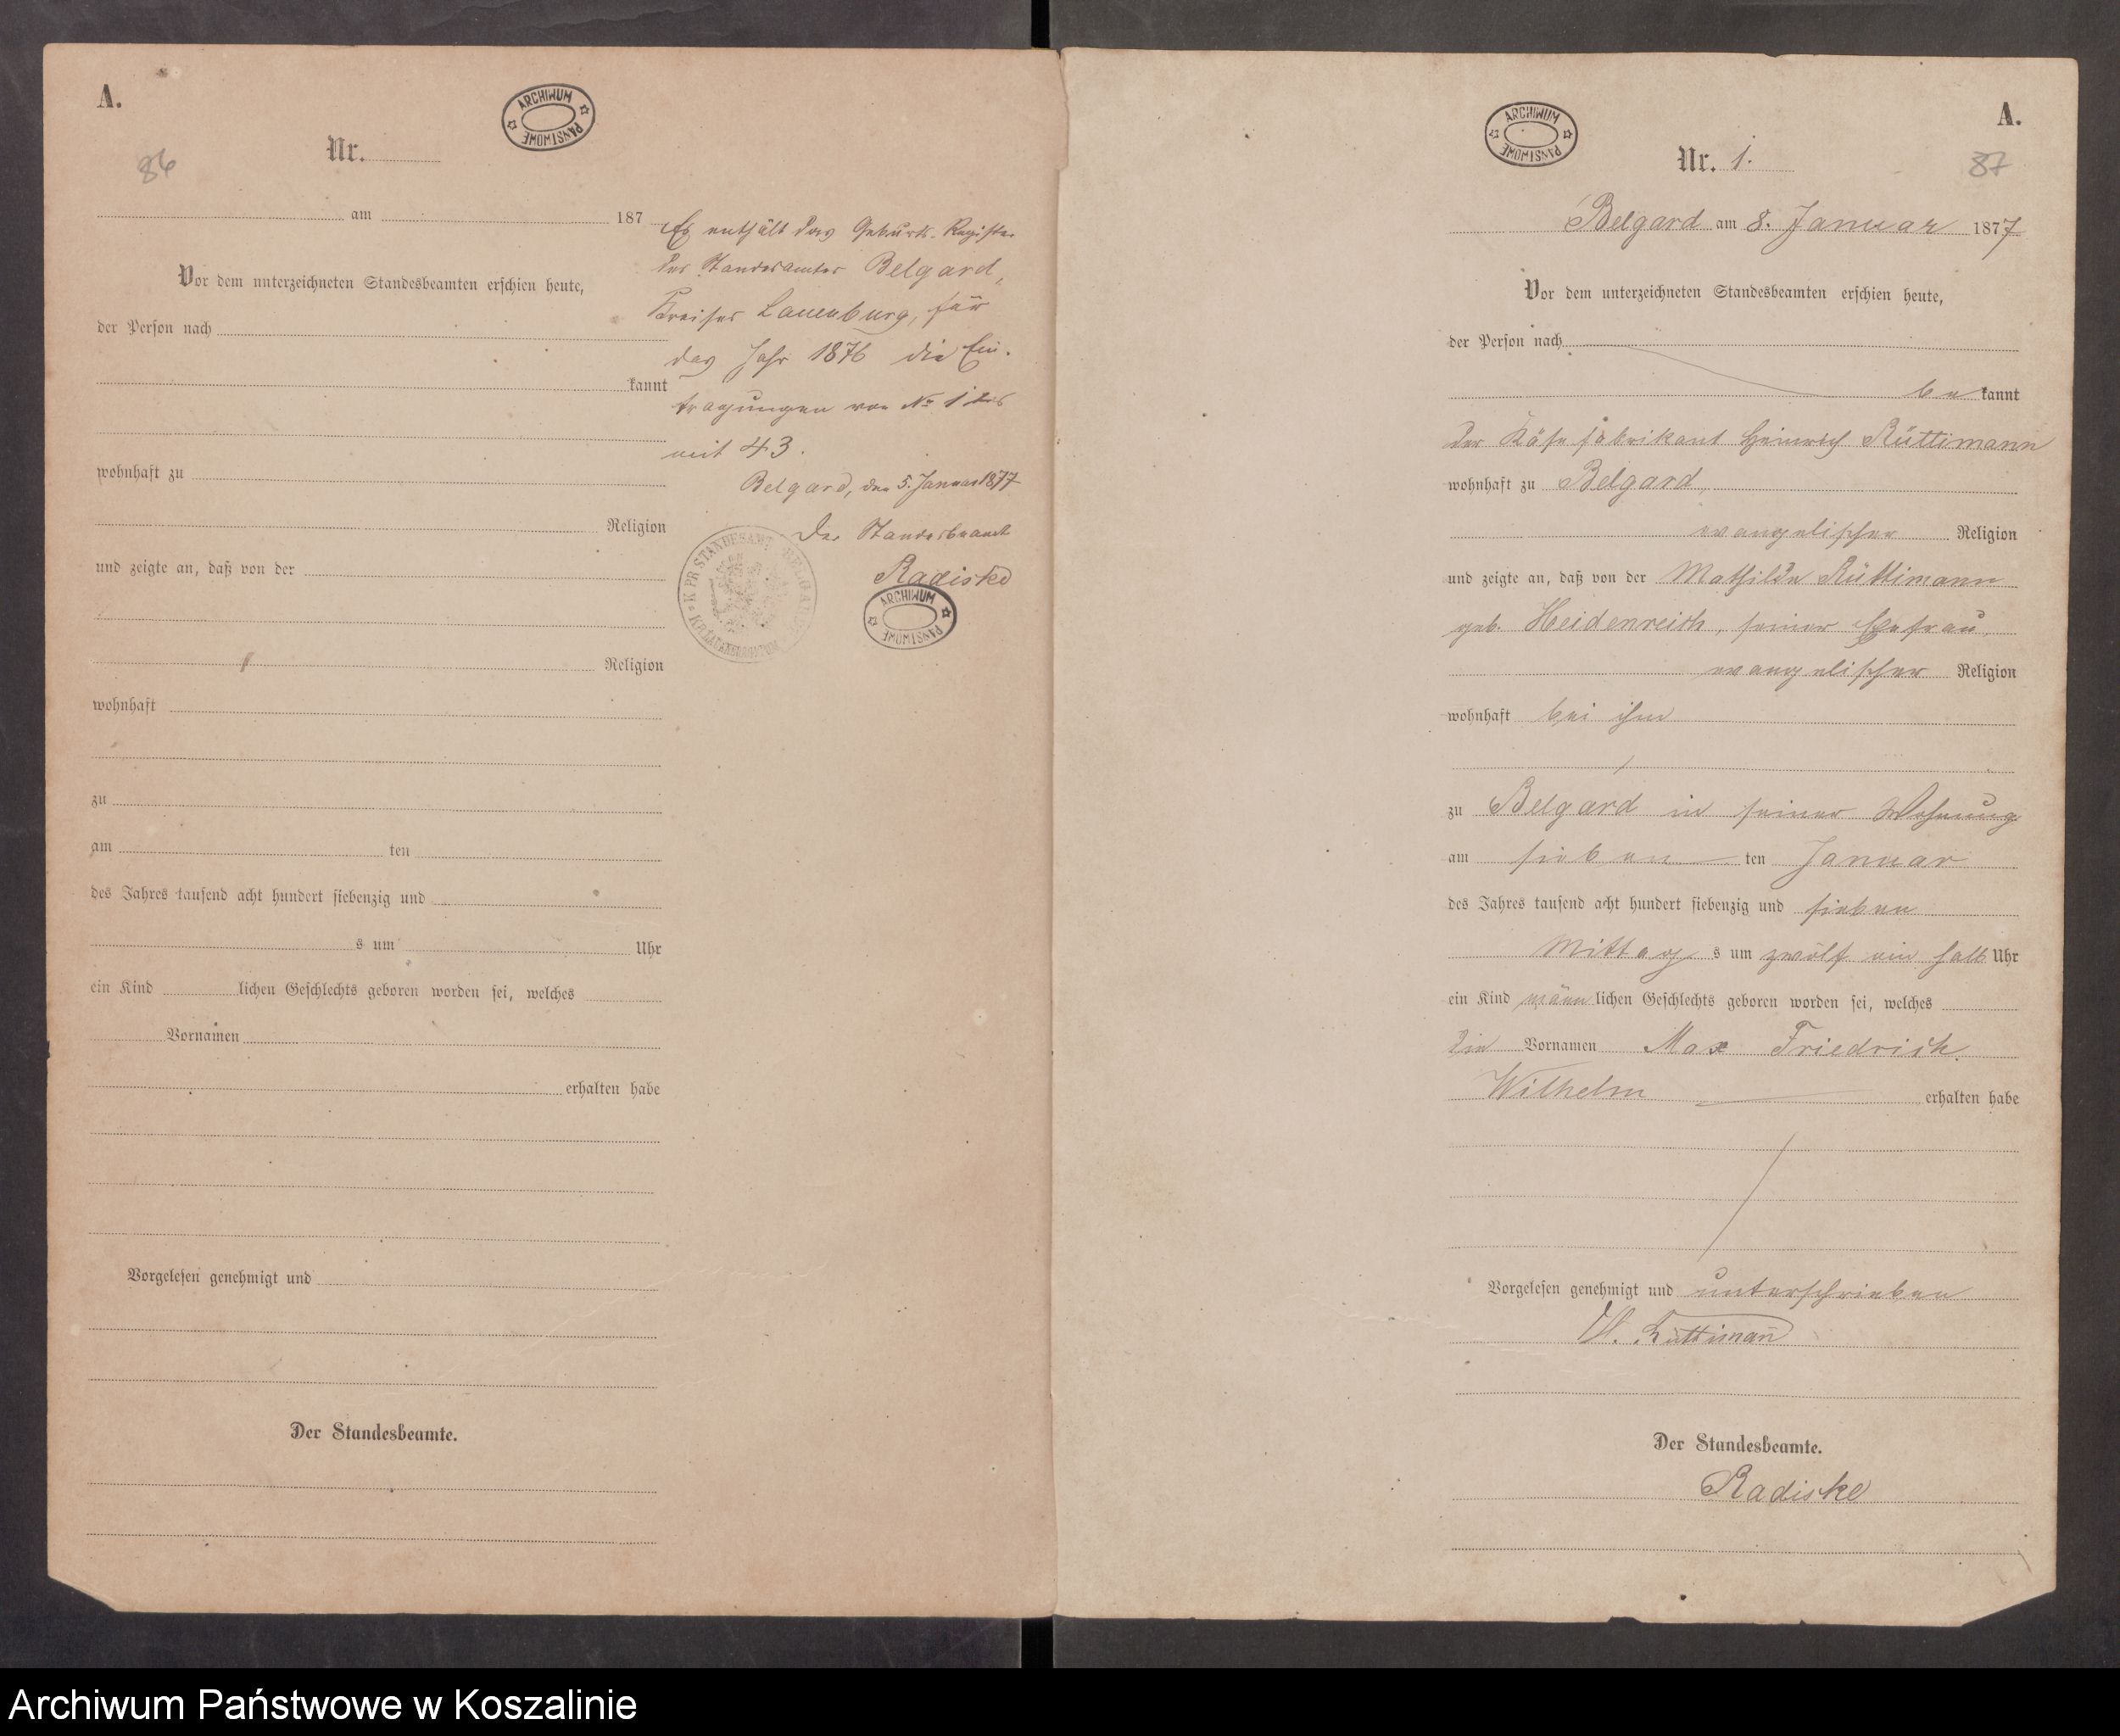 A.
ARCHIWUM PAŃSTWOWE
Nr.
86
am 187
Vor dem unterzeichneten Standesbeamten erschien heute,
der Person nach
kannt
wohnhaft zu
Religion
und zeigte an, daß von der
Religion
wohnhaft
zu
am ten
des Jahres tausend acht hundert siebenzig und
s um Uhr
ein Kind lichen Geschlechts geboren worden sei, welches
Vornamen
erhalten habe
Vorgelesen genehmigt und
Der Standesbeamte.
Es enthält das Geburts-Register
des Standesamtes Belgard,
Kreises Lauenburg, für
das Jahr 1876 die Ein-
tragungen von No 1 bis
mit 43.
Belgard, den 5. Januar 1877
Der Standesbeamte
Radiske
K. PR. STANDESAMT BELGARD
ARCHIWUM PAŃSTWOWE
A.
ARCHIWUM PAŃSTWOWE
Nr. 1.
87
Belgard am 8. Januar 1877
Vor dem unterzeichneten Standesbeamten erschien heute,
der Person nach
bekannt
der Käsefabrikant Heinrich Rüttimann
wohnhaft zu Belgard,
evangelischer Religion
und zeigte an, daß von der Mathilde Rüttimann
geb. Heidenreich, seiner Ehefrau,
evangelischer Religion
wohnhaft bei ihm
zu Belgard in seiner Wohnung
am sieben ten Januar
des Jahres tausend acht hundert siebenzig und sieben
Mittags um zwölf ein halb Uhr
ein Kind männlichen Geschlechts geboren worden sei, welches
die Vornamen Max Friedrich
Wilhelm erhalten habe
Vorgelesen genehmigt und unterschrieben
H. Rüttimann
Der Standesbeamte.
Radiske
Archiwum Państwowe w Koszalinie